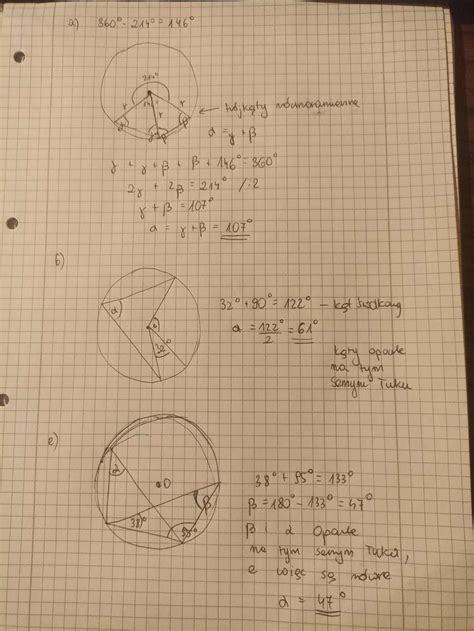 a) 360° - 214° = 146°
214°
r
r
146°
r
α
γ
β
β
← trójkąty równoramienne
α = γ + β
γ + γ + β + β + 146° = 360°
2γ + 2β = 214° /:2
γ + β = 107°
α = γ + β = 107°
b)
α
32°
32° + 90° = 122° - kąt środkowy
α = 122°/2 = 61°
kąty oparte
na tym
samym łuku
c)
α
O
β
38°
95°
38° + 95° = 133°
β = 180° - 133° = 47°
β i α oparte
na tym samym łuku,
a więc są równe
α = 47°